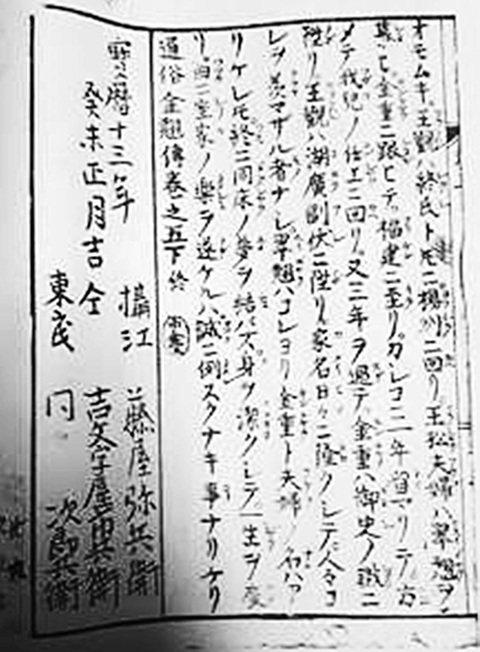 オモムキ王觀ハ終氏ト共ニ揚州ニ回リ王松夫婦ハ翠翹ヲ
慕ヒ金重ニ跟ヒテ福建ニ至リカシコニ一年留マリテ方
メテ ノ仕エニ回リ又三年ヲ過テ金重ハ御史ノ職ニ
陞リ王觀ハ湖廣副 ニ陞リ家名日々ニ隆クシテ人々コ
レヲ羨マザル者ナシ翠翹ハコレヨリ金重ト夫婦ノ名ハア
リケレ𪜈終ニ同床ノ夢ヲ結バズ身ヲ潔クシテ一生ヲ度
リ 室家ノ樂ヲ遂ケルハ誠ニ例スクナキ事ナリケリ
通俗金翹傳卷之五下終
寳暦十三年
癸未正月吉旦
攝江 藤屋弥兵衛
吉文字屋市兵衛
東武 同 次郎兵衛